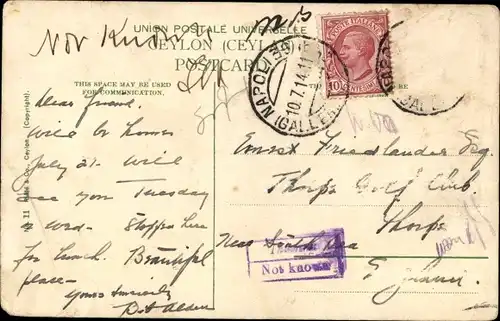 Not Known
UNION POSTALE UNIVERSELLE
CEYLON (CEYL
POSTCARD
THIS SPACE MAY BE USED
FOR COMMUNICATION.
POSTE ITALIANE
10 CENTESIMI
NAPOLI
10.7.14.11
(GALLE
Dear Friend.
Will be home
July 21. Will
see you Tuesday
or Wed. Stopped here
for lunch. Beautiful
place.
Yours Sincerely
Ernest Friedlander Esq
Thorpe Golf Club.
Thorpe
Near South Sea
England
Not known
11 Plâté & Co., Ceylon (Copyright).